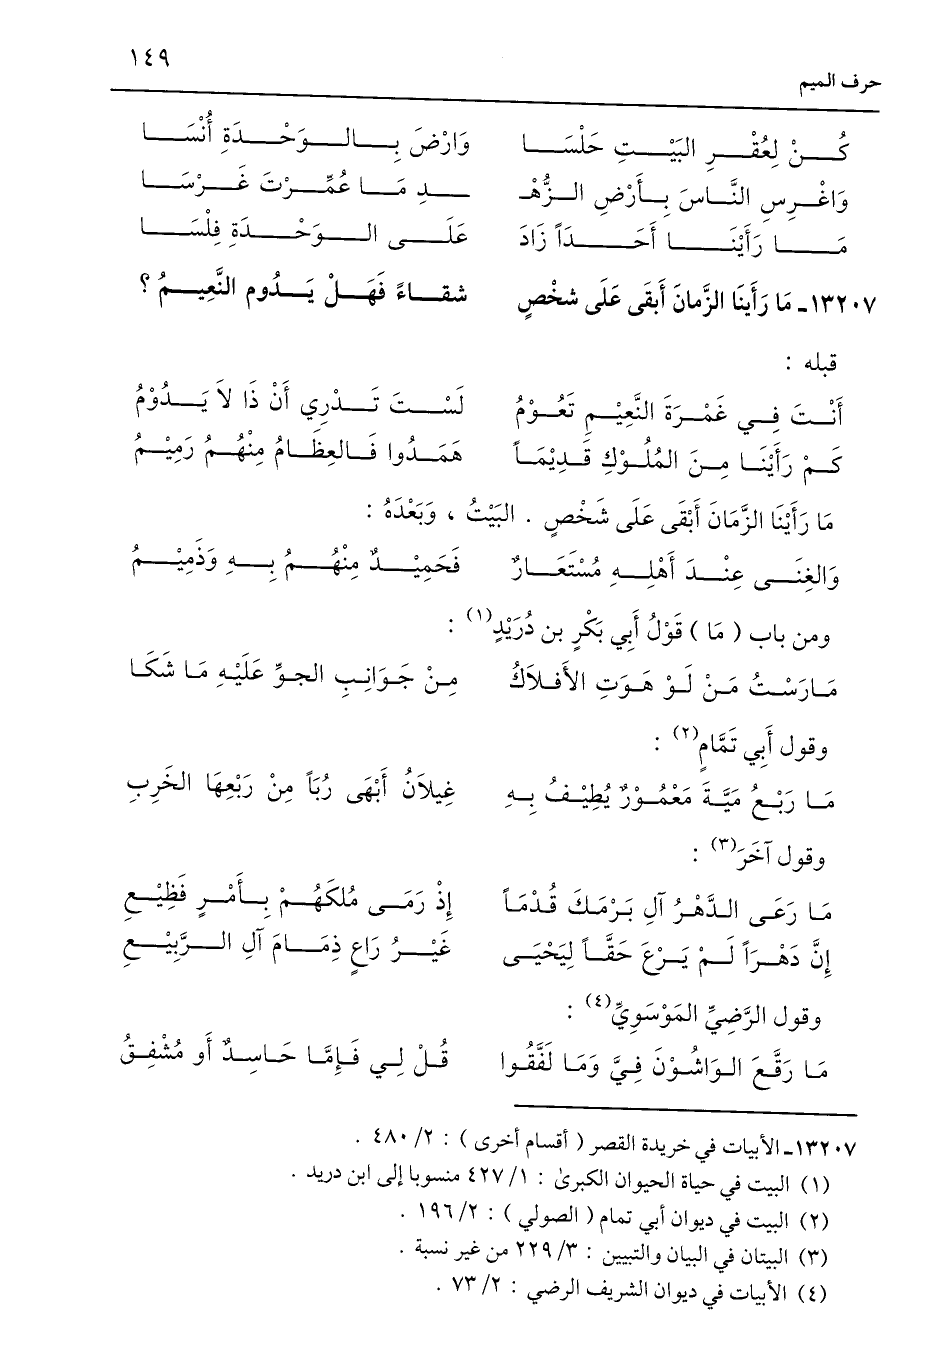 ١٤٩
حرف الميم
كُنْ لِعُقْرِ البَيْتِ حَلْسَا وَارْضَ بِالوَحْدَةِ أُنْسَا
وَاغْرِسِ النَّاسَ بِأَرْضِ الزُّهْـ ـدِ مَا عُمِّرْتَ غَرْسَا
مَا رَأَيْنَا أَحَدَاً زَادَ عَلَى الوَحْدَةِ فِلْسَا
١٣٢٠٧ـ مَا رَأَينَا الزَّمانَ أَبقَى عَلَى شخْصٍ شقاءً فَهَلْ يَدُوم النَّعِيمُ ؟
قبله :
أَنْتَ فِي غَمْرَةَ النَّعِيْمِ تَعُوْمُ لَسْتَ تَدْرِي أَنْ ذَا لاَ يَدُوْمُ
كَمْ رَأَيْنَا مِنَ المُلُوْكِ قَدِيْمَاً هَمَدُوا فَالعِظَامُ مِنْهُمُ رَمِيْمُ
مَا رَأَيْنَا الزَّمَانَ أَبْقَى عَلَى شَخْصٍ . البَيْتُ ، وَبَعْدَهُ :
وَالغِنَى عِنْدَ أَهْلِهِ مُسْتَعَارٌ فَحَمِيْدٌ مِنْهُمُ بِهِ وَذَمِيْمُ
ومن باب ( مَا ) قَوْلُ أَبِي بَكْرٍ بن دُرَيْدٍ(١) :
مَارَسْتُ مَنْ لَوْ هَوَتِ الأَفلاَكُ مِنْ جَوَانِبِ الجوِّ عَلَيْهِ مَا شَكَا
وقول أَبِي تَمَّامٍ(٢) :
مَا رَبْعُ مَيَّةَ مَعْمُوْرٌ يُطِيْفُ بِهِ غِيلاَنُ أَبْهَى رُبَاً مِنْ رَبْعِهَا الخَرِبِ
وقول آخَرَ(٣) :
مَا رَعَى الدَّهْرُ آلِ بَرْمَكَ قُدْمَاً إِذْ رَمَى مُلكَهُمْ بِأَمْرٍ فَظِيْعِ
إِنَّ دَهْرَاً لَمْ يَرْعَ حَقَّاً لِيَحْيَى غَيْرُ رَاعٍ ذِمَامَ آلِ الرَّبِيْعِ
وقول الرَّضِيِّ المَوْسَوِيِّ(٤) :
مَا رَقَّعَ الوَاشُوْنَ فِيَّ وَمَا لَفَّقُوا قُلْ لِي فَإِمَّا حَاسِدٌ أو مُشْفِقُ
١٣٢٠٧ـ الأبيات في خريدة القصر ( أقسام أخرى ) : ٢/ ٤٨٠ .
(١) البيت في حياة الحيوان الكبرىٰ : ١/ ٤٢٧ منسوبا إلى ابن دريد .
(٢) البيت في ديوان أبي تمام ( الصولي ) : ٢/ ١٩٦ .
(٣) البيتان في البيان والتبيين : ٣/ ٢٢٩ من غير نسبة .
(٤) الأبيات في ديوان الشريف الرضي : ٢/ ٧٣ .